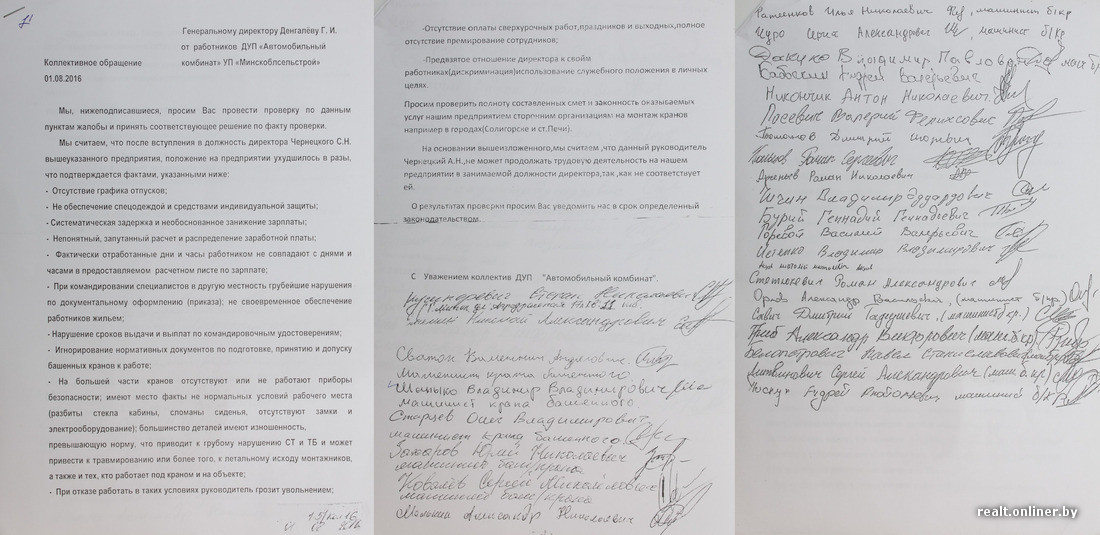 Генеральному директору Денгалёву Г. И.
от работников ДУП «Автомобильный
Коллективное обращение комбинат» УП «Минскоблсельстрой»
01.08.2016
Мы, нижеподписавшиеся, просим Вас провести проверку по данным
пунктам жалобы и принять соответствующее решение по факту проверки.
Мы считаем, что после вступления в должность директора Чернецкого С.Н.
вышеуказанного предприятия, положение на предприятии ухудшилось в разы,
что подтверждается фактами, указанными ниже:
- Отсутствие графика отпусков;
- Не обеспечение спецодеждой и средствами индивидуальной защиты;
- Систематическая задержка и необоснованное занижение зарплаты;
- Непонятный, запутанный расчет и распределение заработной платы;
- Фактически отработанные дни и часы работником не совпадают с днями и
часами в предоставляемом расчетном листе по зарплате;
- При командировании специалистов в другую местность грубейшие нарушения
по документальному оформлению (приказа); не своевременное обеспечение
работников жильем;
- Нарушение сроков выдачи и выплат по командировочным удостоверениям;
- Игнорирование нормативных документов по подготовке, принятию и допуску
башенных кранов к работе;
- На большей части кранов отсутствуют или не работают приборы
безопасности; имеют место факты не нормальных условий рабочего места
(разбиты стекла кабины, сломаны сиденья, отсутствуют замки и
электрооборудование); большинство деталей имеют изношенность,
превышающую норму, что приводит к грубому нарушению СТ и ТБ и может
привести к травмированию или более того, к летальному исходу монтажников,
а также и тех, кто работает под краном и на объекте;
- При отказе работать в таких условиях руководитель грозит увольнением;
-Отсутствие оплаты сверхурочных работ,праздников и выходных,полное
отсутствие премирование сотрудников;
-Предвзятое отношение директора к свойм
работниках(дискриминация)использование служебного положения в личных
целях.
Просим проверить полноту составленных смет и законность оказываемых
услуг нашим предприятием сторонним организациям на монтаж кранов
например в городах(Солигорске и ст.Печи).
На основании вышеизложенного,мы считаем ,что данный руководитель
Чернецкий А.Н.,не может продолжать трудовую деятельность на нашем
предприятии в занимаемой должности директора,так ,как не соответствует
ей.
О результатах проверки просим Вас уведомить нас в срок определенный
законодательством.
С Уважением коллектив ДУП "Автомобильный комбинат".
Степан Николаевич
Николай Александрович
Сватон Валентин Андреевич
Машинист крана башенного
Шанько Владимир Владимирович
Машинист крана башенного
Старцев Олег Владимирович
машинист крана башенного
Захаров Юрий Николаевич
машинист баш/крана
Ковалёв Сергей Михайлович
машинист баш/крана
Александр Николаевич
Илья Николаевич машинист б/кр
Александрович машинист б/кр
Владимир Павлов
Андрей Валерьевич
Никончик Антон Николаевич
Посевич Валерий Феликсович
Дмитрий
Роман Сергеевич
Роман Николаевич
Владимир Эдуардович
Бурий Геннадий Геннадьевич
Горевой Василий Валерьевич
Владимир Владимирович
Роман Александрович
Александр (машинист б/кр)
Савич Дмитрий Тадеушевич (машинист б/кр.)
Гриб Александр Викторович (маш б кр)
Павел Станиславович
Литвинович Сергей Александрович (маш. б. кр.)
Андрей машинист б/к
realt.onliner.by